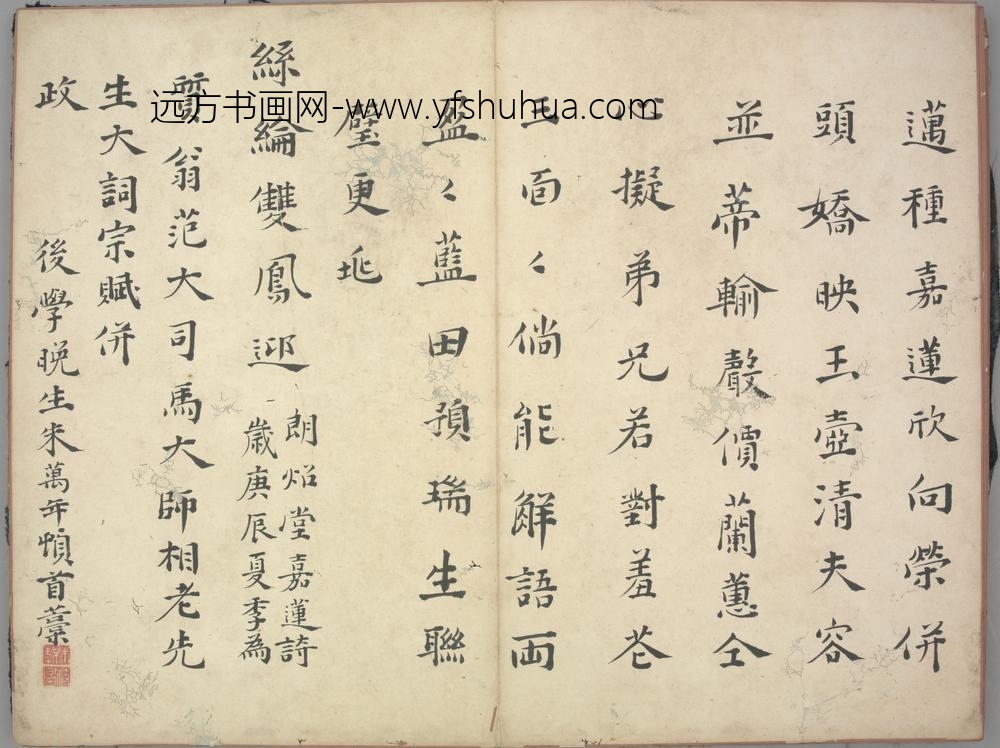 邁種嘉蓮欣向榮併
頭嬌映玉壺清夫容
並蒂輸聲價蘭蕙仝
心擬弟兄若對羞花
玉面〻倘能解語兩
盈〻藍田預瑞生聯
璧更兆
絲綸雙鳳迎
朗炤堂嘉蓮詩
歲庚辰夏季為
質翁范大司馬大師相老先
生大詞宗賦併
政
後學晚生朱萬年頓首藁
远方书画网-www.yfshuhua.com